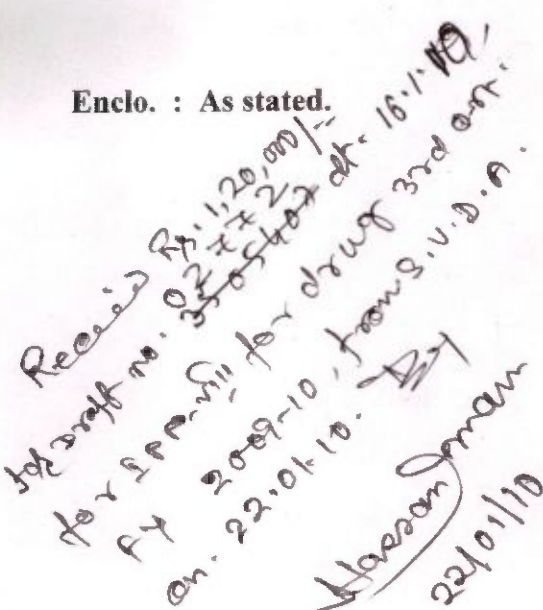 Enclo. : As stated.
Received Rs. 1,20,000/-
Draft no. 027725 dt. 16.1.10,
for IPP-VIII for drug 3rd qrt.
FY 2009-10, from S.U.D.A.
on. 22.01.10. By
Hassan Imam
22/01/10